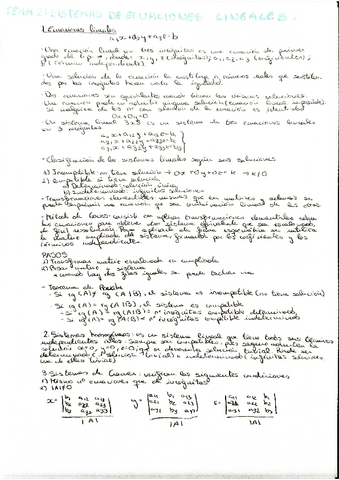 TEMA 2: SISTEMAS DE ECUACIONES LINEALES.
1. Ecuaciones lineales
a1x+a2y+a3z=b
- Una ecuación lineal con tres incógnitas es una ecuación de primer
grado de tipo , donde x, y, z (incógnitas); a1, a2, a3 (coeficientes);
b (término independiente)
- Una solución de la ecuación la sustituye a números reales que sustitui-
dos por las incógnitas hacen cierta la igualdad.
- Dos ecuaciones son equivalentes cuando tienen las mismas soluciones.
- Una ecuación puede no admitir ninguna solución (ecuación lineal incompatible).
Si cualquiera de los nº son solución de la ecuación es identidad
0x+0y=0
- Un sistema lineal 3x3 es un sistema de tres ecuaciones lineales
con 3 incógnitas
a11x+a12y+a13z=b1
a21x+a22y+a23z=b2
a31x+a32y+a33z=b3
- Clasificación de los sistemas lineales según sus soluciones
1) Incompatible: no tiene solución → 0x+0y+0z=k → k≠0
2) Compatible: si tiene solución
a) Determinado: solución única
b) Indeterminado: infinitas soluciones
- Transformaciones elementales: mismas que en matrices y además se
puede suprimir una ecuación que sea combinación lineal de las otras
- Método de Gauss: consiste en aplicar transformaciones elementales sobre
las ecuaciones para obtener otro sistema equivalente que sea escalonado
de fácil resolución. Para aplicarlo de forma esquemática se utiliza
la matriz ampliada del sistema formada por los coeficientes y los
términos independientes
PASOS
1) Transformar matriz escalonada en ampliada
2) Pasar matriz a sistema
* cuando hay dos filas iguales se puede tachar una
- Teorema de Rouché
- Si rg(A)≠ rg(A|B), el sistema es incompatible (no tiene solución)
- Si rg(A)=rg(A|B), el sistema es compatible
- Si rg(A)=rg(A|B)=nº incógnitas compatible determinado
- Si rg(A)=rg(A|B)<nº incógnitas compatible indeterminado
2. Sistemas homogéneos: es un sistema lineal que tiene todos sus términos
independientes nulos. Siempre son compatibles, pues siempre admiten la
solución x=0, y=0, z=0, que se denomina solución trivial. Puede ser
determinado (1ª solución trivial) o indeterminado (infinitas soluciones
una de ellas trivial)
3. Sistemas de Cramer: verifican las siguientes condiciones
1) Mismo nº ecuaciones que de incógnitas
2) |A|≠0
x= |b1 a12 a13| y= |a11 b1 a13| z= |a11 a12 b1|
|b2 a22 a23| |a21 b2 a23| |a21 a22 b2|
|b3 a32 a33| |a31 b3 a33| |a31 a32 b3|
|A| |A| |A|